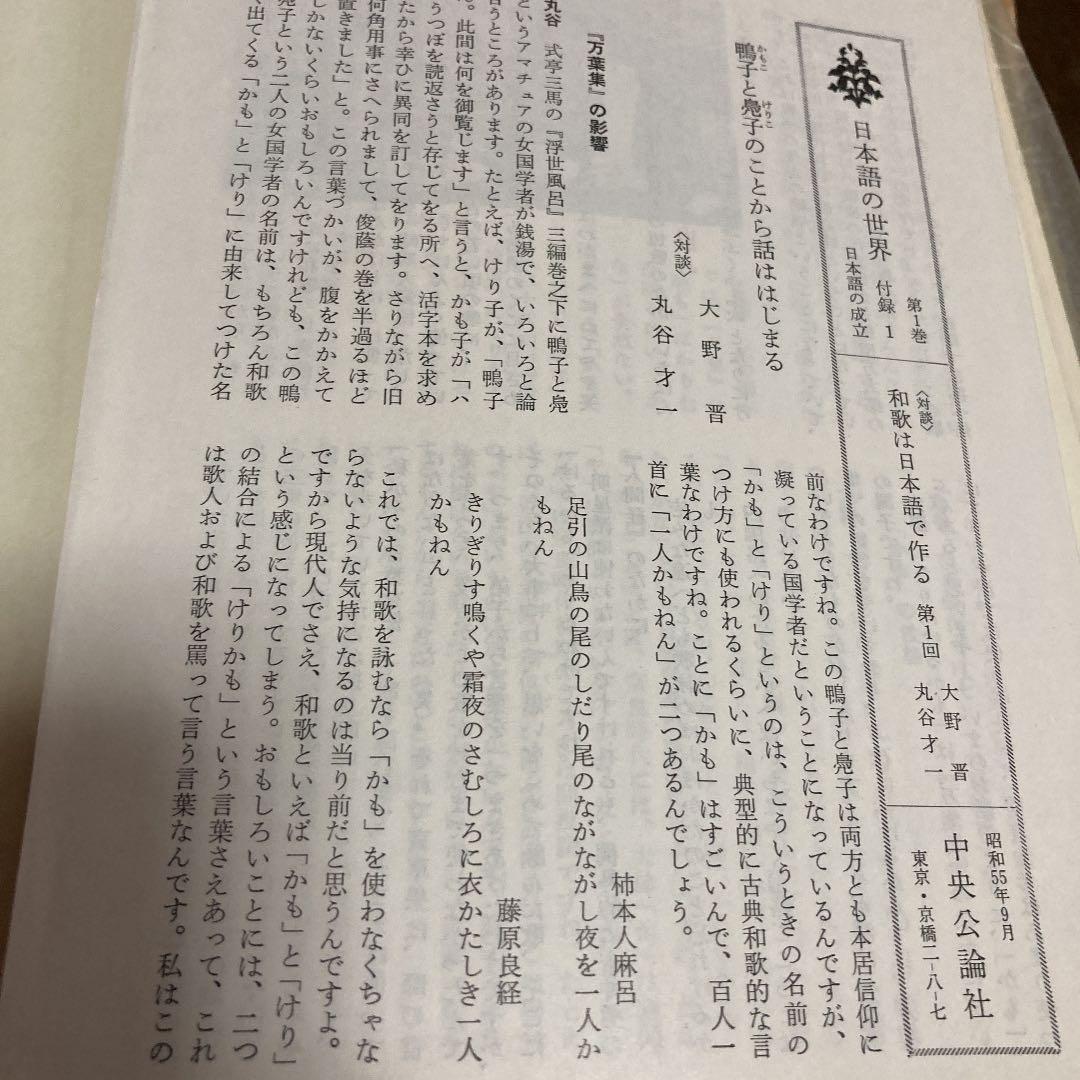 日本語の世界
付録 1
第1巻
日本語の成立
〈対談〉
和歌は日本語で作る 第1回
大野 晋
丸谷才一
昭和55年9月
中央公論社
東京・京橋二-八-七
鴨子と鳧子のことから話ははじまる
かもこ
けりこ
〈対談〉
大野 晋
丸谷才一
『万葉集』の影響
丸谷 式亭三馬の『浮世風呂』三編巻之下に鴨子と鳧
というアマチュアの女国学者が銭湯で、いろいろと論
言うところがあります。たとえば、けり子が、「鴨子
。此間は何を御覧じます」と言うと、かも子が「ハ
うつぼを読返さうと存じてをる所へ、活字本を求め
たから幸ひに異同を訂してをります。さりながら旧
何角用事にさへられまして、俊蔭の巻を半過るほど
置きました」と。この言葉づかいが、腹をかかえて
しかないくらいおもしろいんですけれども、この鴨
鳧子という二人の女国学者の名前は、もちろん和歌
く出てくる「かも」と「けり」に由来してつけた名
前なわけですね。この鴨子と鳧子は両方とも本居信仰に
凝っている国学者だということになっているんですが、
「かも」と「けり」というのは、こういうときの名前の
つけ方にも使われるくらいに、典型的に古典和歌的な言
葉なわけですね。ことに「かも」はすごいんで、百人一
首に「一人かもねん」が二つあるんでしょう。
柿本人麻呂
足引の山鳥の尾のしだり尾のながながし夜を一人か
もねん
藤原良経
きりぎりす鳴くや霜夜のさむしろに衣かたしき一人
かもねん
これでは、和歌を詠むなら「かも」を使わなくちゃな
らないような気持になるのは当り前だと思うんですよ。
ですから現代人でさえ、和歌といえば「かも」と「けり」
という感じになってしまう。おもしろいことには、二つ
の結合による「けりかも」という言葉さえあって、これ
は歌人および和歌を罵って言う言葉なんです。私はこの